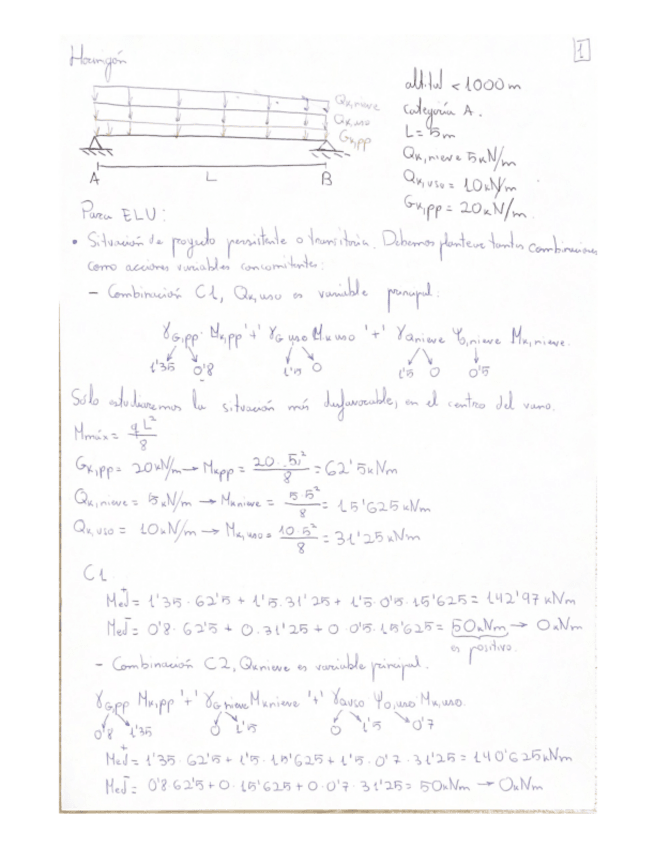 Hormigón
1
Qk,nieve
Qk,uso
Gk,pp
A L B
altitud < 1000 m
categoría A.
L = 5m
Qk,nieve = 5kN/m
Qk,uso = 10kN/m
Gk,pp = 20kN/m.
Para ELU:
• Situación de proyecto persistente o transitoria. Debemos plantear tantas combinaciones
como acciones variables concomitantes:
- Combinación C1, Qk,uso es variable principal:
γG,pp · Mk,pp '+' γG uso Mk uso '+' γQ nieve Ψ0,nieve Mk,nieve.
1'35 0'8 1'5 0 1'5 0 0'5
Sólo estudiaremos la situación más desfavorable, en el centro del vano.
Mmáx = qL²/8
Gk,pp = 20kN/m → Mkpp = 20·5²/8 = 62'5kNm
Qk,nieve = 5kN/m → Mknieve = 5·5²/8 = 15'625kNm
Qk,uso = 10kN/m → Mk,uso = 10·5²/8 = 31'25kNm
C1
Med⁺ = 1'35·62'5 + 1'5·31'25 + 1'5·0'5·15'625 = 142'97kNm
Med⁻ = 0'8·62'5 + 0·31'25 + 0·0'5·15'625 = 50kNm → 0kNm
es positivo.
- Combinación C2, Qknieve es variable principal.
γG,pp Mk,pp '+' γG nieve Mknieve '+' γQ uso Ψ0,uso Mk,uso.
0'8 1'35 0 1'5 0 1'5 0'7
Med⁺ = 1'35·62'5 + 1'5·15'625 + 1'5·0'7·31'25 = 140'625kNm
Med⁻ = 0'8·62'5 + 0·15'625 + 0·0'7·31'25 = 50kNm → 0kNm